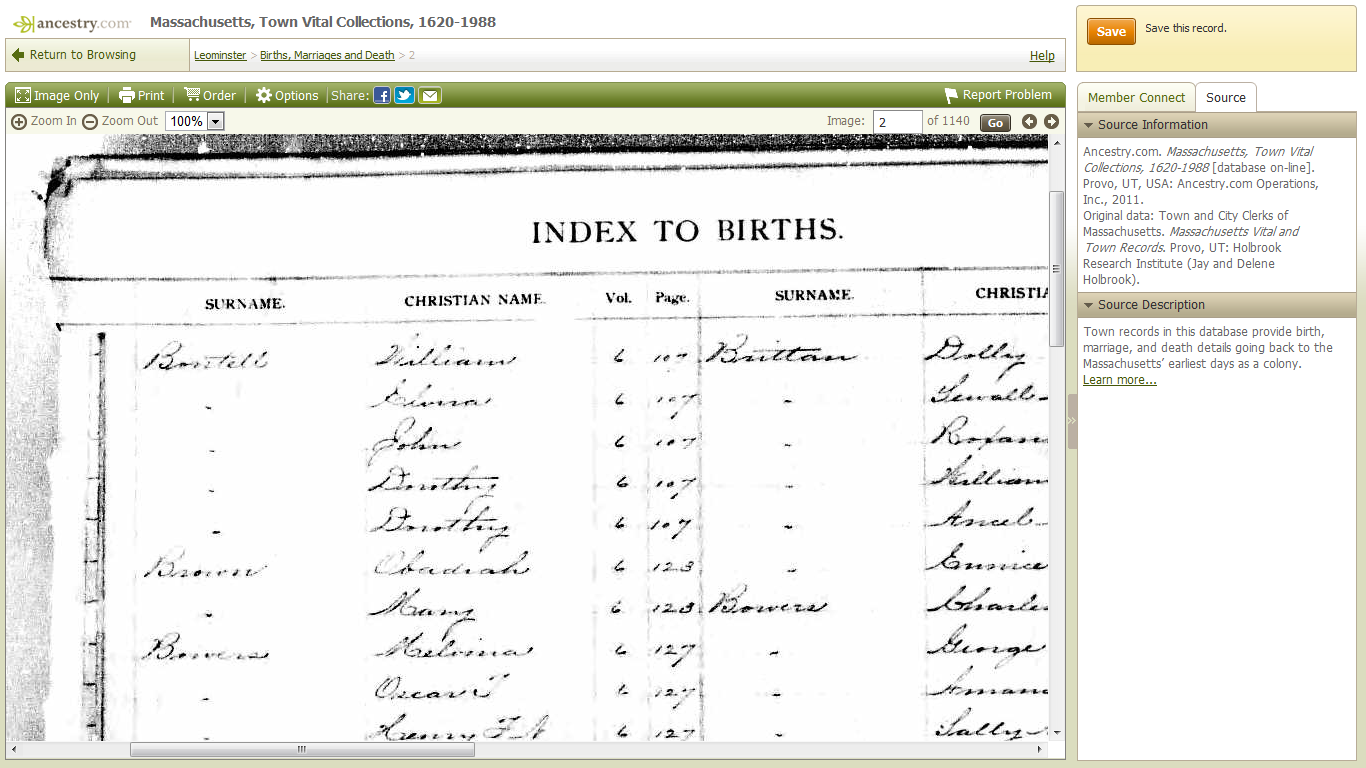 ancestry.com Massachusetts, Town Vital Collections, 1620-1988
Return to Browsing Leominster > Births, Marriages and Death > 2 Help
Image Only Print Order Options Share: Report Problem
Zoom In Zoom Out 100% Image: 2 of 1140 Go
INDEX TO BIRTHS.
SURNAME. CHRISTIAN NAME. Vol. Page. SURNAME. CHRISTIA
Boutell William 6 107 Brittan Dolly
" Elvira 6 107 " Sewall
" John 6 107 " Roxan
" Dorothy 6 107 " William
" Dorothy 6 107 " Ancel
Brown Obadiah 6 123 " Eunice
" Mary 6 123 Bowers Charles
Bowers Melvina 6 127 " George
" Oscar T 6 127 " Aman
" Henry F A 6 127 " Sally
Save Save this record.
Member Connect Source
Source Information
Ancestry.com. Massachusetts, Town Vital
Collections, 1620-1988 [database on-line].
Provo, UT, USA: Ancestry.com Operations,
Inc., 2011.
Original data: Town and City Clerks of
Massachusetts. Massachusetts Vital and
Town Records. Provo, UT: Holbrook
Research Institute (Jay and Delene
Holbrook).
Source Description
Town records in this database provide birth,
marriage, and death details going back to the
Massachusetts' earliest days as a colony.
Learn more...